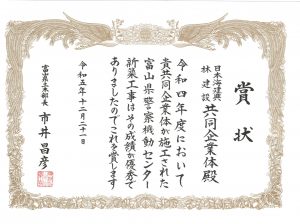 賞状
日本海建興
林建設
共同企業体殿
令和四年度において
貴共同企業体が施工された
富山県警察機動センター
新築工事はその成績が優秀で
ありましたのでこれを賞します
令和五年十二月二十一日
富山県土木部長
市井昌彦